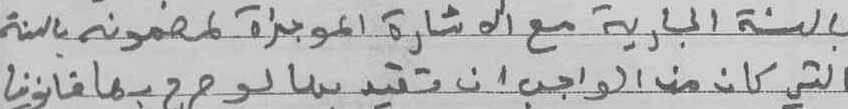 بالسنة الجارية مع الاشارة الموجزة لمضمونه بالسنة
التي كان من الواجب ان تقيد بها لو صرح بها قانونيا